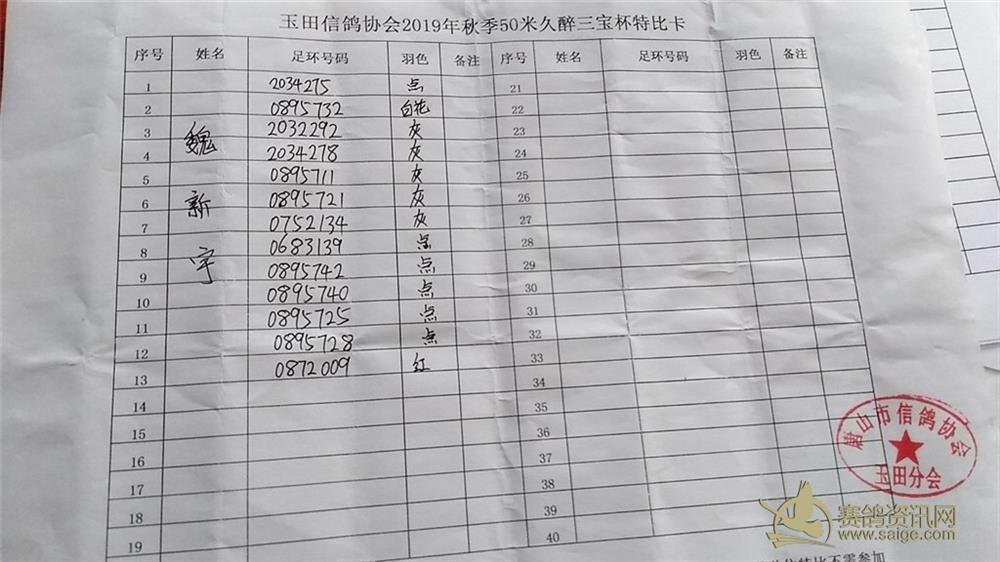 玉田信鸽协会2019年秋季50米久醉三宝杯特比卡
序号 姓名 足环号码 羽色 备注 序号 姓名 足环号码 羽色 备注
1 2034275 点 21
2 0895732 白花 22
3 2032292 灰 23
4 2034278 灰 24
5 0895711 灰 25
6 0895721 灰 26
7 0752134 灰 27
8 0683139 点 28
9 0895742 点 29
10 0895740 点 30
11 0895725 点 31
12 0895728 点 32
13 0872009 红 33
14 34
15 35
16 36
17 37
18 38
19 39
40
魏新宇
唐山市信鸽协会
玉田分会
赛鸽资讯网
www.saige.com
特比不需参加